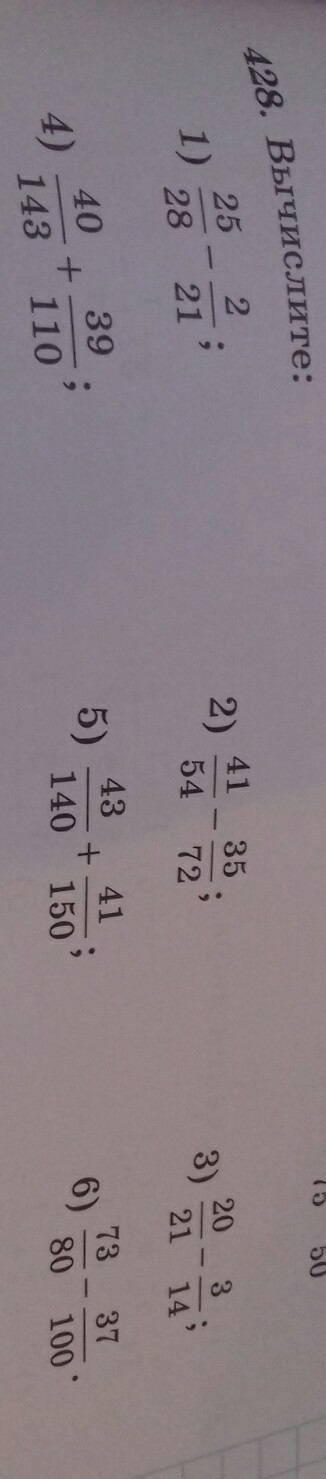 75 50
428. Вычислите:
1) 25/28 − 2/21; 2) 41/54 − 35/72; 3) 20/21 − 3/14;
4) 40/143 + 39/110; 5) 43/140 + 41/150; 6) 73/80 − 37/100.